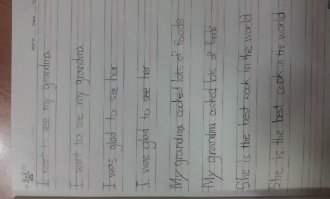 I went to see my grandma
I went to see my grandma
I was glad to see her
I was glad to see her
My grandma cooked lots of foods
My grandma cooked lots of foods
She is the best cook in the world
She is the best cook in the world